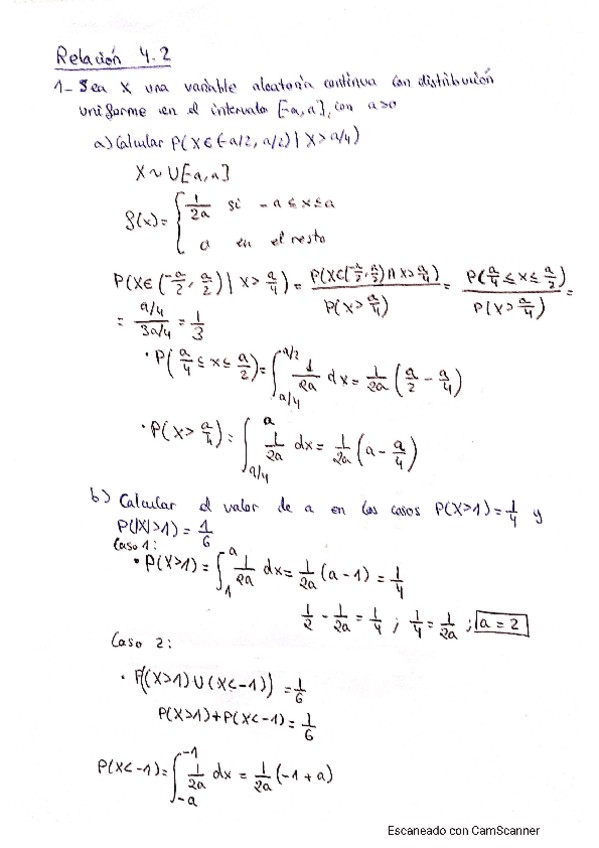 Relación 4.2
1- Sea X una variable aleatoria continua con distribución
uniforme en el intervalo [-a,a], con a>0
a) Calcular P(X∈(-a/2, a/2) | X>a/4)
X~U[-a,a]
f(x)= { 1/2a si -a≤x≤a
0 en el resto
P(X∈(-a/2, a/2) | X> a/4) = P(X∈(-a/2, a/2) ∩ X> a/4) / P(X> a/4) = P(a/4 ≤ x ≤ a/2) / P(X> a/4) =
= (a/4)/(3a/4) = 1/3
· P(a/4 ≤ x ≤ a/2) = ∫_{a/4}^{a/2} 1/2a dx = 1/2a (a/2 - a/4)
· P(X> a/4) = ∫_{a/4}^{a} 1/2a dx = 1/2a (a - a/4)
b) Calcular el valor de a en los casos P(X>1)= 1/4 y
P(|X|>1) = 1/6
Caso 1:
· P(X>1) = ∫_{1}^{a} 1/2a dx = 1/2a (a-1) = 1/4
1/2 - 1/2a = 1/4 ; 1/4 = 1/2a ; a = 2
Caso 2:
· P((X>1)∪(X<-1)) = 1/6
P(X>1)+P(X<-1) = 1/6
P(X<-1) = ∫_{-a}^{-1} 1/2a dx = 1/2a (-1+a)
Escaneado con CamScanner